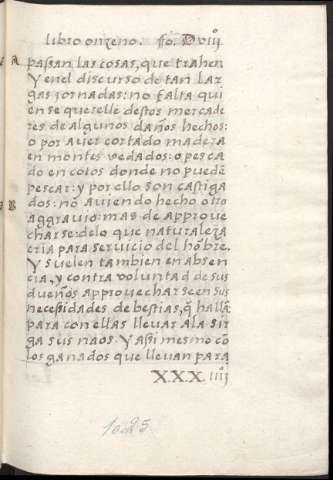 libro onzeno. fo. Dviij
A passan las cosas, que trahen
Y en el discurso de tan lar
gas jornadas: no falta qui
en se querelle destos mercade
res de algunos daños hechos:
o por auer cortado madera
en montes vedados: o pesca
do en cotos donde no puedē
pescar: y por ello son castiga
B dos: no auiendo hecho otro
aggrauio: mas de approue
charse: delo que naturaleza
cria para seruicio del hōbre.
Y suelen tambien en absen
cia, y contra voluntad de sus
dueños approuecharse en sus
necessidades de bestias, q̄ hallā:
para con ellas lleuar ala sir
ga sus naos. Y assi mesmo cō
los ganados que lleuan para
X.X.X.iiij